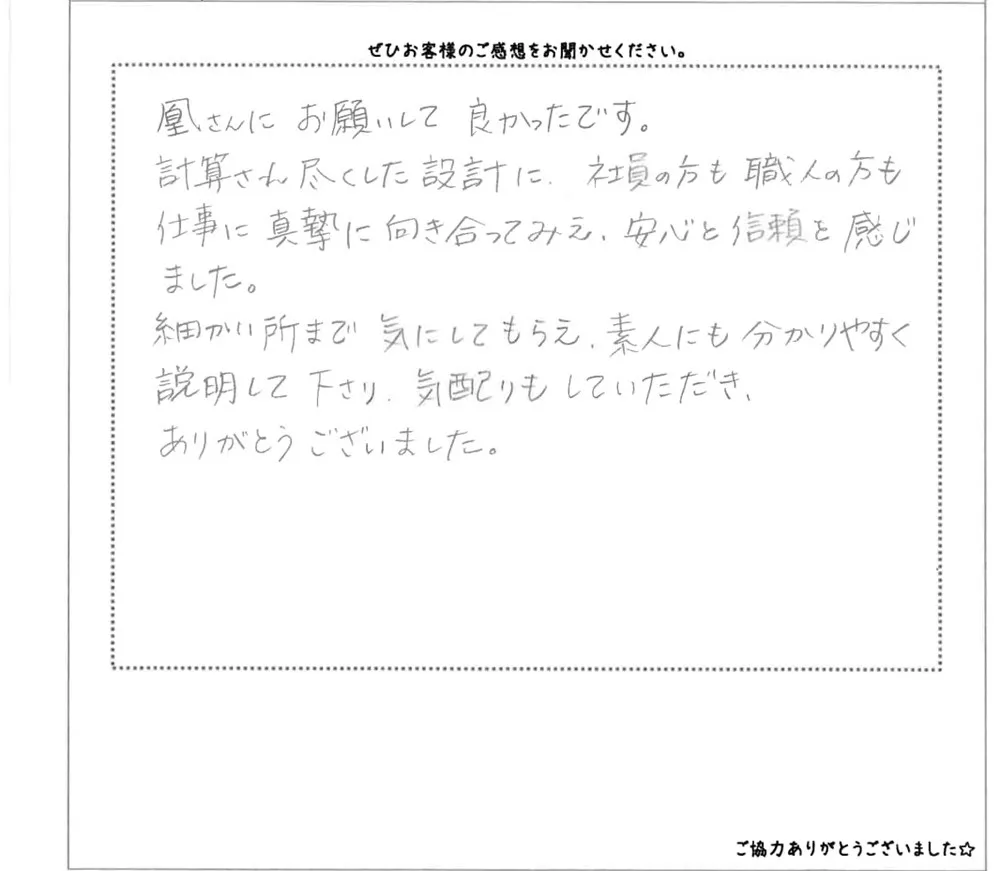 ぜひお客様のご感想をお聞かせください。
凰さんに お願いして 良かったです。
計算され尽くした設計に、社員の方も 職人の方も
仕事に 真摯に向き合ってみえ、安心と信頼を感じ
ました。
細かい所まで 気にしてもらえ、素人にも 分かりやすく
説明して 下さり、気配りも していただき、
ありがとうございました。
ご協力ありがとうございました☆